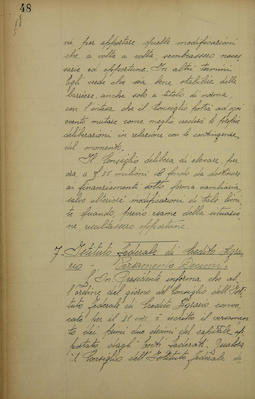 48
ni per apportare quelle modificazioni
che, a volta a volta, sembrassero neces
sarie ed opportune. In altri termini
egli vede che sia bene stabilire delle
barriere, anche solo a titolo di norma
con l'intesa che il Consiglio potrà ad ogni
evento mutare come meglio crederà le proprie
deliberazioni in relazione con le contingenze
del momento.
Il Consiglio delibera di elevare, per
ora, a £ 35 milioni il fondo da destinare
ai finanziamenti sotto forma cambiaria
salvo ulteriori modificazioni di tale limi
te quando, previo esame della situazio
ne, risultassero opportune.
7- Istituto Federale di Credito Agra
rio - Versamento Decimi -
L'On. Presidente informa che al
l'ordine del giorno del Consiglio dell'Isti
tuto Federale di Credito Agrario convo
cato per il 21 c.m. è iscritto il versamen
to dei primi due decimi del capitale ap
portato dagli Enti Federati. Qualora
il Consiglio dell'Istituto Federale de